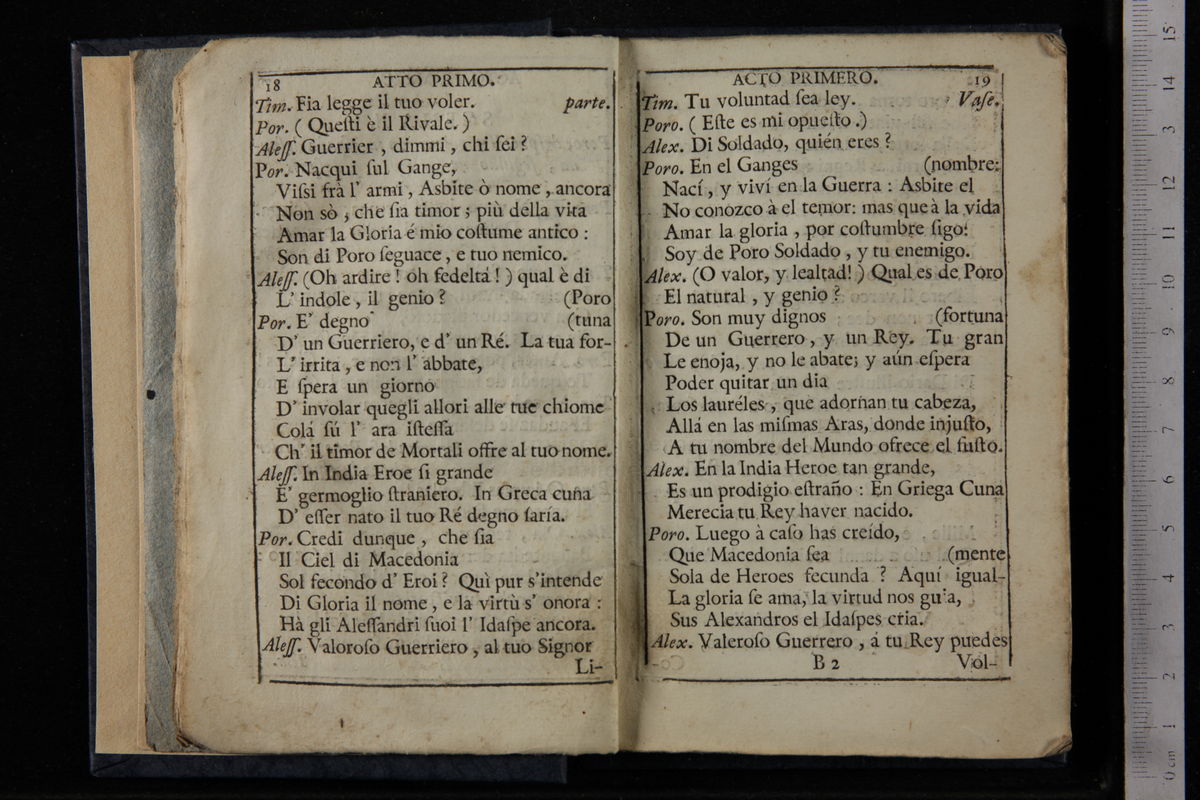 18 ATTO PRIMO.
Tim. Fia legge il tuo voler. parte.
Por. ( Queſti è il Rivale. )
Aleſſ. Guerrier , dimmi , chi ſei ?
Por. Nacqui ſul Gange,
Viſsi frà l' armi , Asbite ò nome , ancora
Non sò , che ſia timor ; più della vita
Amar la Gloria é mio coſtume antico :
Son di Poro ſeguace , e tuo nemico.
Aleſſ. (Oh ardire ! oh fedeltá ! ) qual è di
L' indole , il genio ? (Poro
Por. E' degno (tuna
D' un Guerriero, e d' un Ré. La tua for-
L' irrita , e non l' abbate,
E ſpera un giorno
D' involar quegli allori alle tue chiome
Colá ſú l' ara iſteſſa
Ch' il timor de Mortali offre al tuo nome.
Aleſſ. In India Eroe ſi grande
E' germoglio ſtraniero. In Greca cuna
D' eſſer nato il tuo Ré degno ſaría.
Por. Credi dunque , che ſia
Il Ciel di Macedonia
Sol fecondo d' Eroi ? Quì pur s'intende
Di Gloria il nome , e la virtù s' onora :
Hà gli Aleſſandri ſuoi l' Idaſpe ancora.
Aleſſ. Valoroſo Guerriero , al tuo Signor
Li-
ACTO PRIMERO. 19
Tim. Tu voluntad ſea ley. Vaſe.
Poro. ( Eſte es mi opueſto .)
Alex. Di Soldado, quién eres ?
Poro. En el Ganges (nombre:
Nací , y viví en la Guerra : Asbite el
No conozco à el temor: mas que à la vida
Amar la gloria , por coſtumbre ſigo:
Soy de Poro Soldado , y tu enemigo.
Alex. (O valor, y lealtad! ) Qual es de Poro
El natural , y genio ?
Poro. Son muy dignos (fortuna
De un Guerrero , y un Rey. Tu gran
Le enoja, y no le abate; y aún eſpera
Poder quitar un dia
Los lauréles , que adornan tu cabeza,
Allá en las miſmas Aras, donde injuſto,
A tu nombre del Mundo ofrece el ſuſto.
Alex. En la India Heroe tan grande,
Es un prodigio eſtraño : En Griega Cuna
Merecia tu Rey haver nacido.
Poro. Luego à caſo has creído,
Que Macedonia ſea (mente
Sola de Heroes fecunda ? Aquí igual-
La gloria ſe ama, la virtud nos guia,
Sus Alexandros el Idaſpes cria.
Alex. Valeroſo Guerrero , á tu Rey puedes
B 2 Vol-